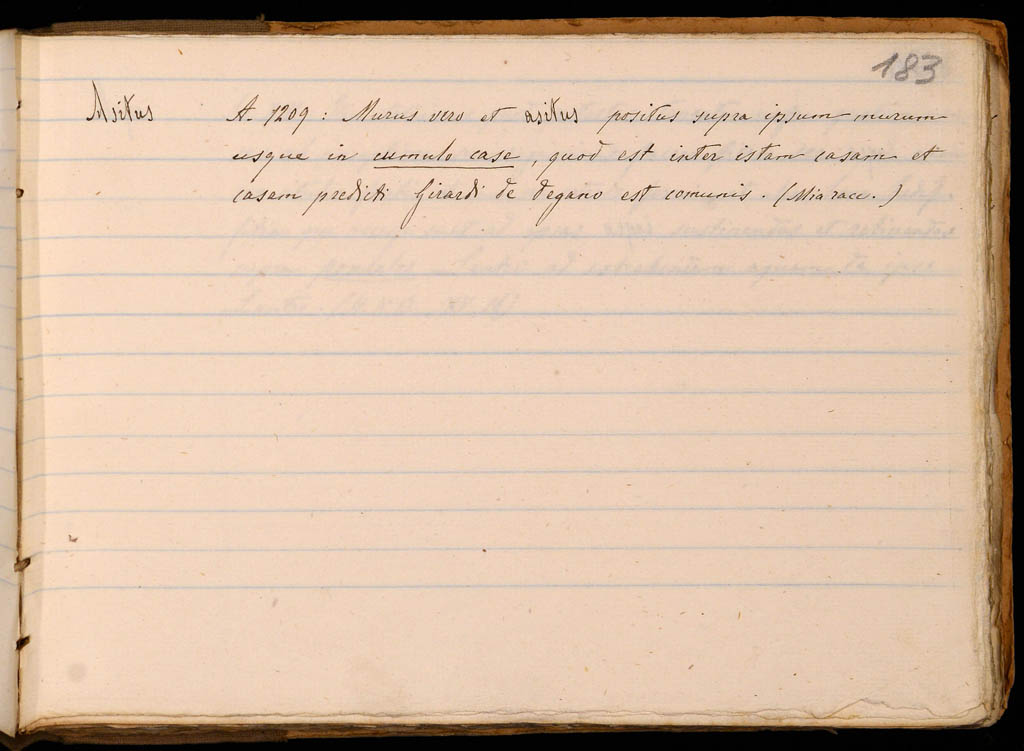 183
Asitus A. 1209: Murus vero et asitus positus supra ipsum murum
usque in cumulo case, quod est inter istam casam et
casam predicti Girardi de Degano est comunis. (Mia racc.)